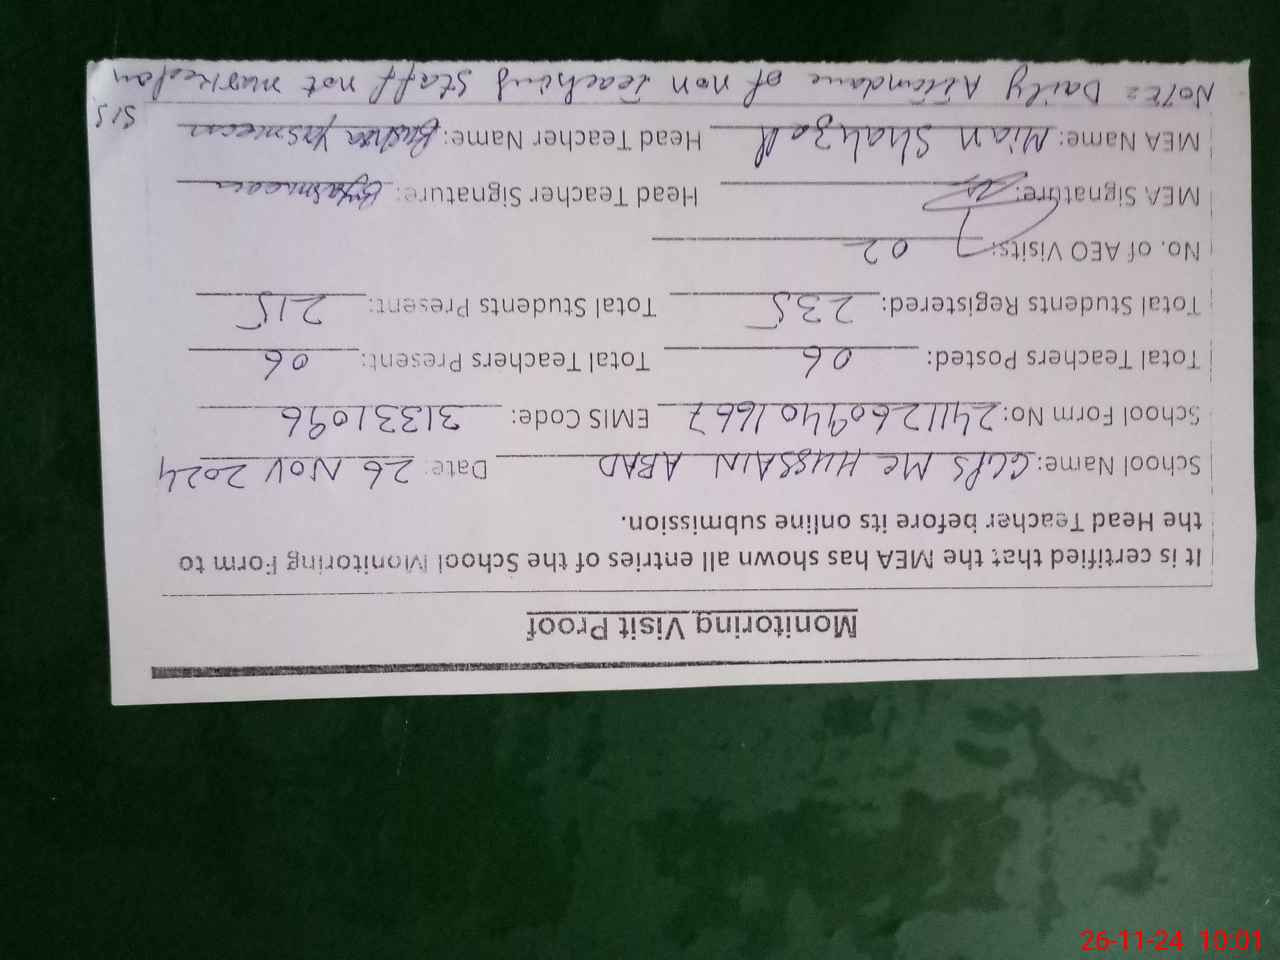 Monitoring Visit Proof
It is certified that the MEA has shown all entries of the School Monitoring Form to
the Head Teacher before its online submission.
School Name: GGPS MC HUSSAIN ABAD Date: 26 NOV 2024
School Form No: 241126094401667 EMIS Code: 31331096
Total Teachers Posted: 06 Total Teachers Present: 06
Total Students Registered: 235 Total Students Present: 215
No. of AEO Visits: 02
MEA Signature: Head Teacher Signature: BYasmeen
MEA Name: Mian Shahzad Head Teacher Name: Bushra Yasmeen
NOTE: Daily Attendane of non Teaching Staff not marked on
SIS
26-11-24 10:01